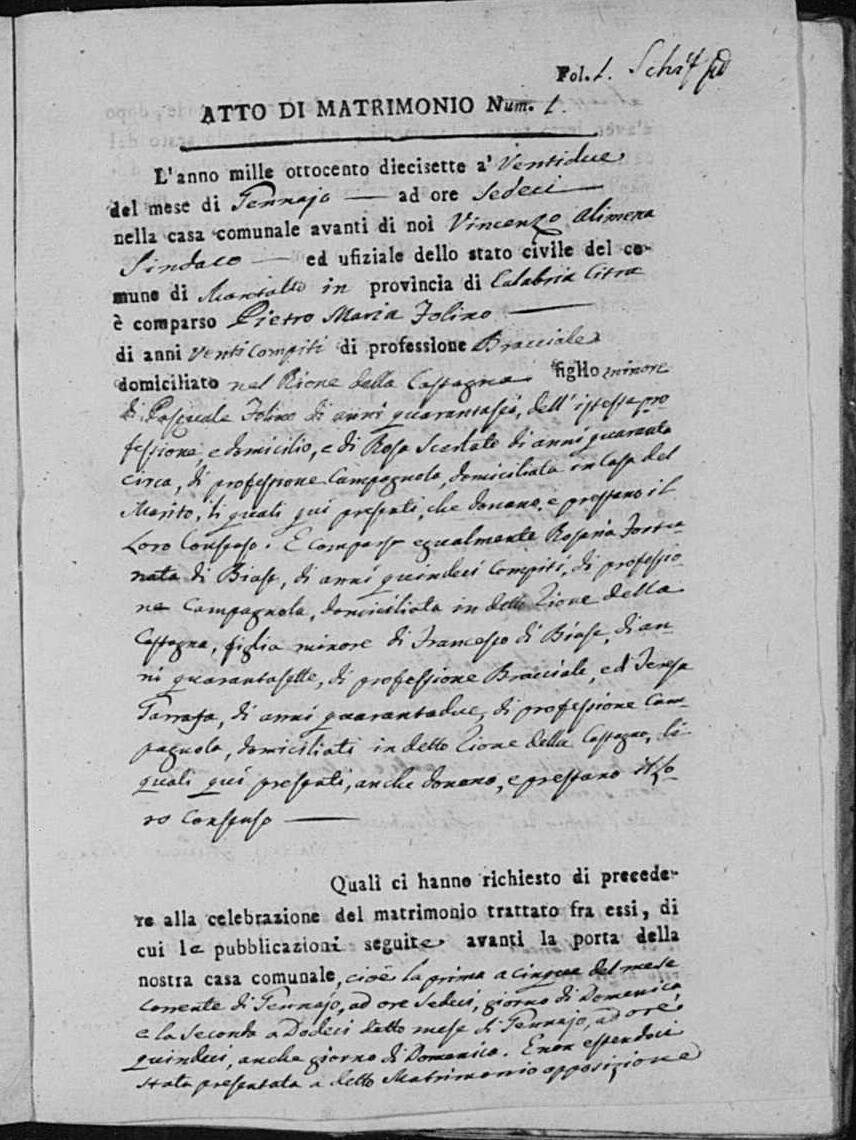 Fol. 1.
ATTO DI MATRIMONIO Num. 1.
L'anno mille ottocento diecisette a' Ventidue
del mese di Gennajo — ad ore Sedeci —
nella casa comunale avanti di noi Vincenzo Alimena
Sindaco — ed ufiziale dello stato civile del co-
mune di Montalto in provincia di Calabria Citra
è comparso Pietro Maria Folino —
di anni Venti Compiti di professione Bracciale
domiciliato nel Rione della Castagna figlio minore
di Pasquale Folino di anni quarantasei, dell'istessa pro
fessione, e domicilio, e di Rosa Scarlato di anni quaranta
circa, di professione Campagnola, domiciliata in Casa del
Marito, li quali qui presenti, che donano, e prestano il
Loro Consenso. E comparsa egualmente Rosaria Fortu
nata di Biase, di anni quindeci Compiti, di professio
ne Campagnola, domiciliata in detto Rione della
Castagna, figlia minore di Francesco di Biase, di an-
ni quarantasette, di professione Bracciale, e di Teresa
di anni quarantadue, di professione Cam-
pagnola, domiciliati in detto Rione della Castagna, li
quali qui presenti, anche donano, e prestano il lo
ro Consenso —
Quali ci hanno richiesto di precede-
re alla celebrazione del matrimonio trattato fra essi, di
cui le pubblicazioni seguite avanti la porta della
nostra casa comunale, cioè la prima a cinque del mese
corrente di Gennajo, ad ore Sedeci, giorno di Domenica,
e la Seconda a Dodeci detto mese di Gennajo, ad ore
quindeci, anche giorno di Domenica. E non essendoci
stata presentata a detto Matrimonio opposizione